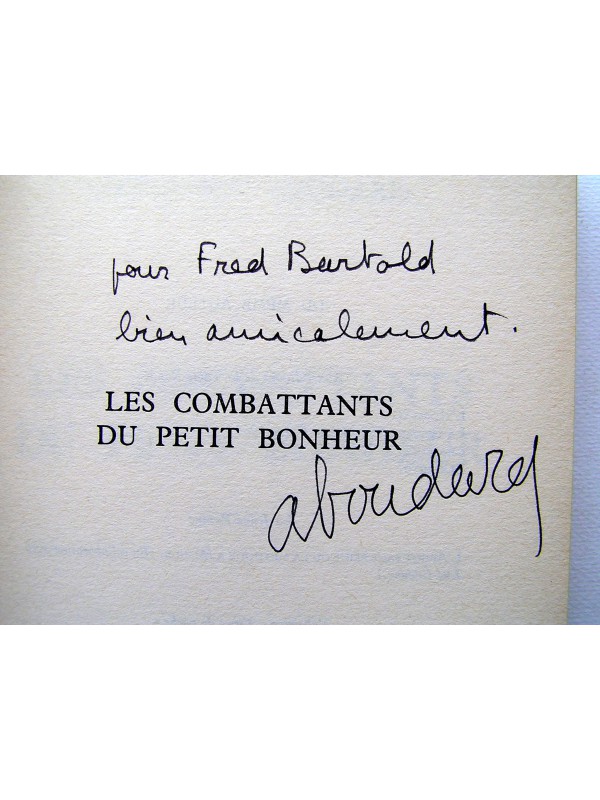 pour Fred Bartold
bien amicalement.
LES COMBATTANTS
DU PETIT BONHEUR
aboudard